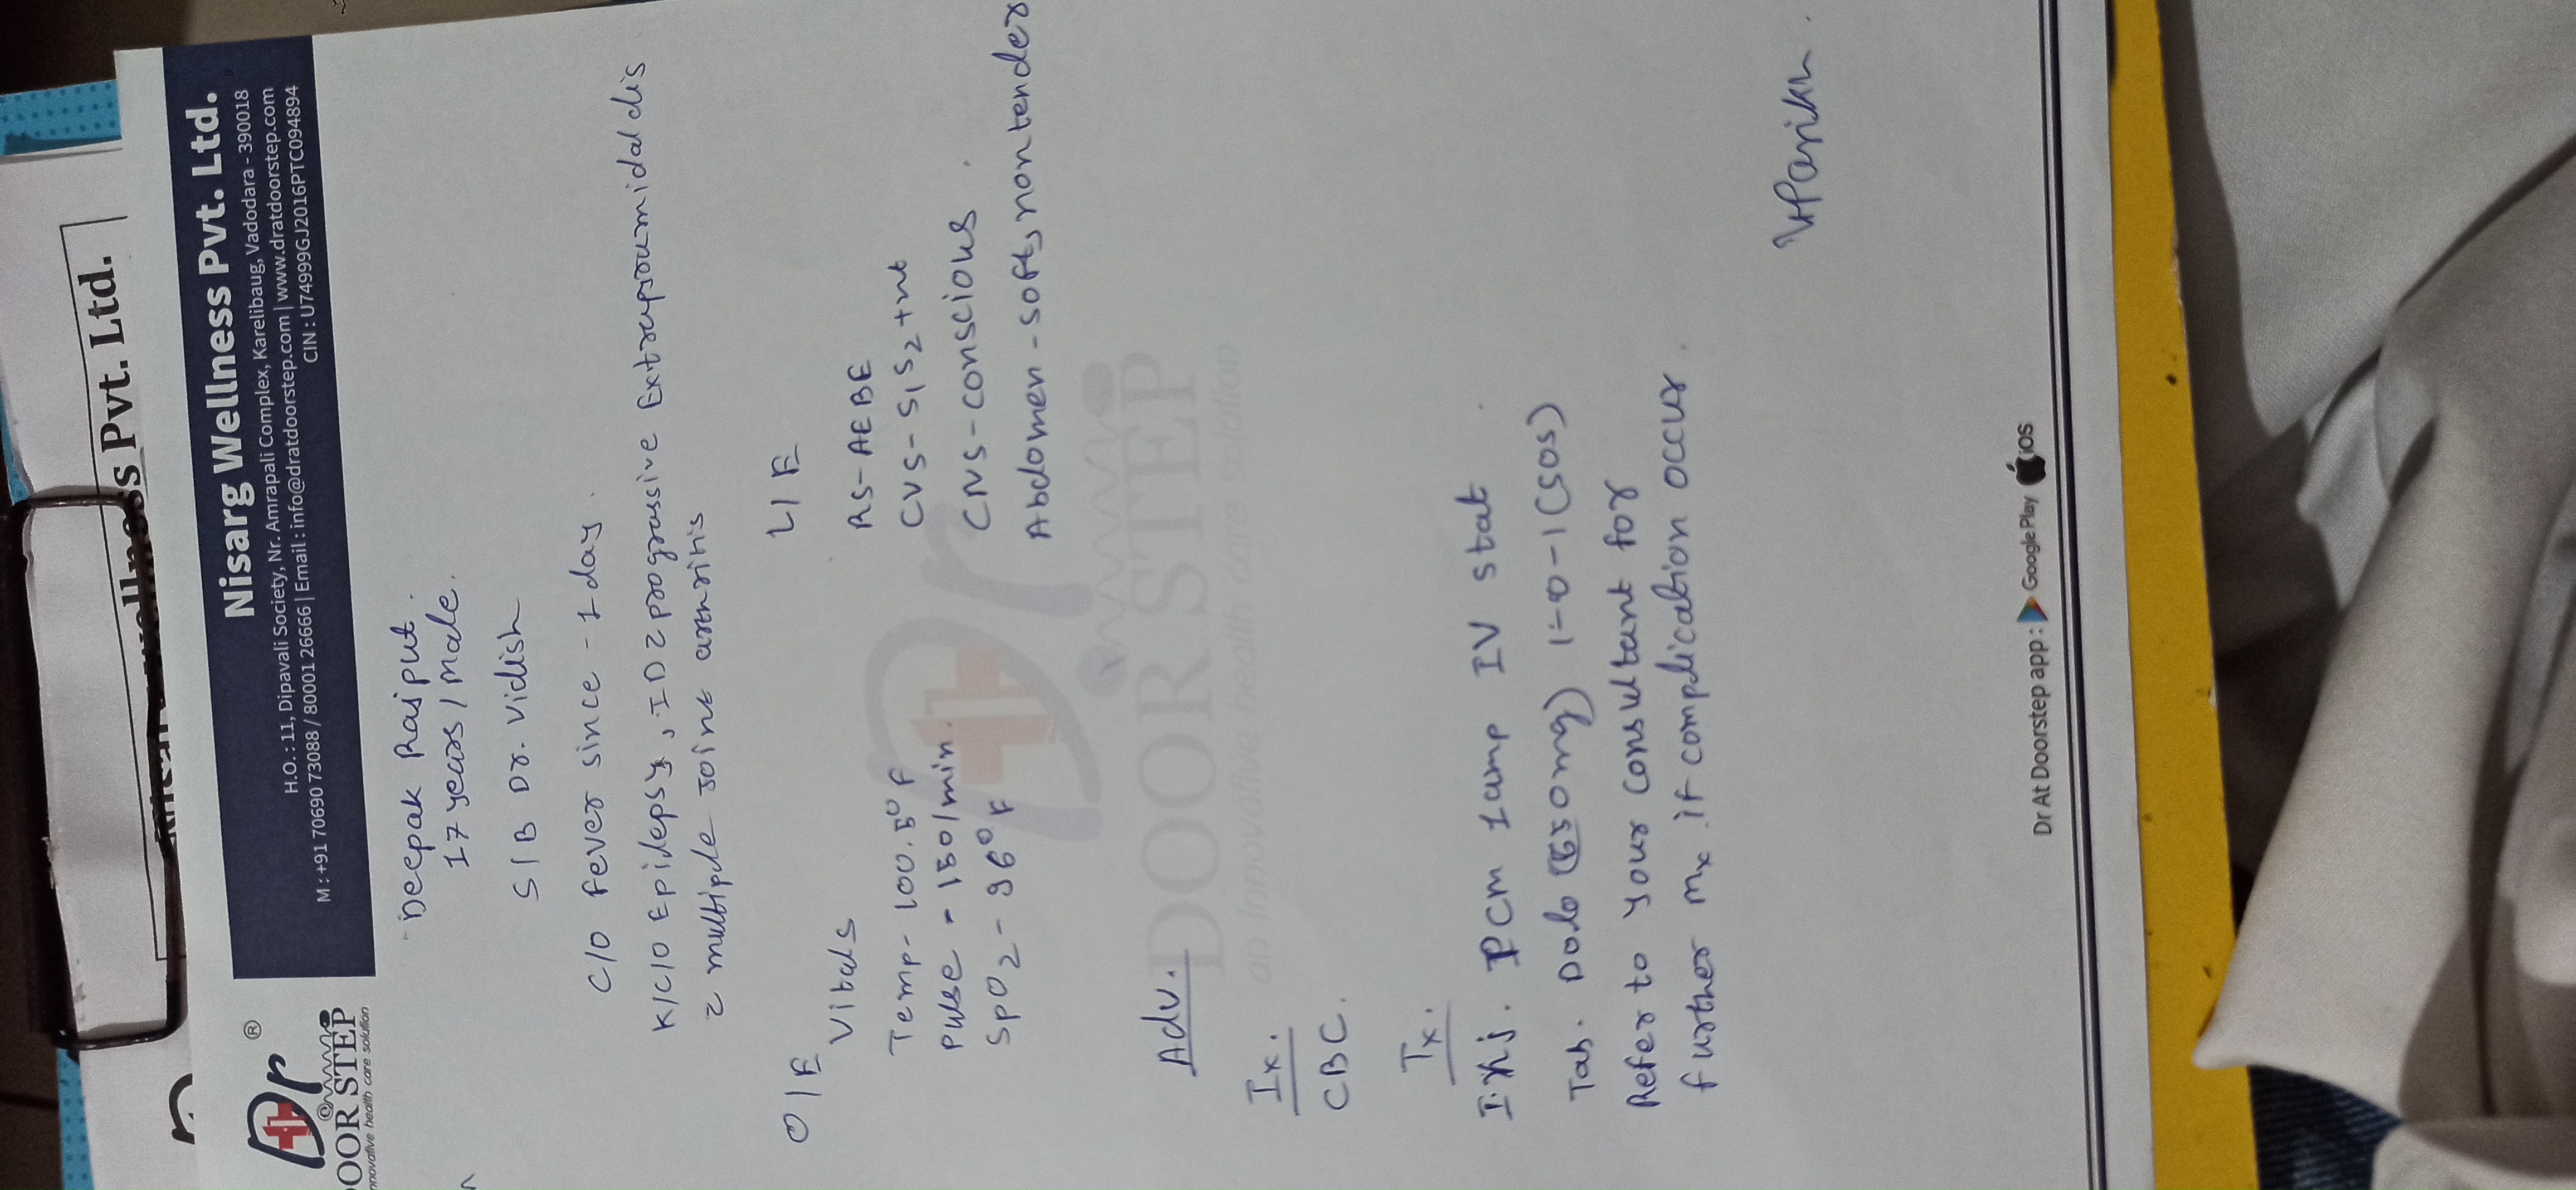 Nisarg Wellness Pvt. Ltd.
Dr ®
DOOR STEP
innovative health care solution
Nisarg Wellness Pvt. Ltd.
H.O. : 11, Dipavali Society, Nr. Amrapali Complex, Karelibaug, Vadodara - 390018
M : +91 70690 73088 / 80001 26666 | Email : info@dratdoorstep.com | www.dratdoorstep.com
CIN : U74999GJ2016PTC094894
Deepak Rajput.
17 years / Male.
S/B Dr. Vidish
C/O Fever since - 1 day.
K/C/O Epilepsy, ID c progressive Extrapyramidal dis
c multiple joint arthritis
O/E
Vitals
Temp- 100.5° F
Pulse - 150/min.
SpO2 - 96° F
L/E
RS- AEBE
CVS- S1 S2 +nt
CNS- conscious
Abdomen - soft, non tender
Dr
DOOR STEP
an innovative health care solution
Adv.
Ix.
CBC.
Tx.
Inj. PCM 1 amp IV stat
Tab. Dolo (650mg) 1-0-1 (SOS)
Refer to your consultant for
further Mx if complication occur.
Parikh.
Dr At Doorstep app : Google Play iOS